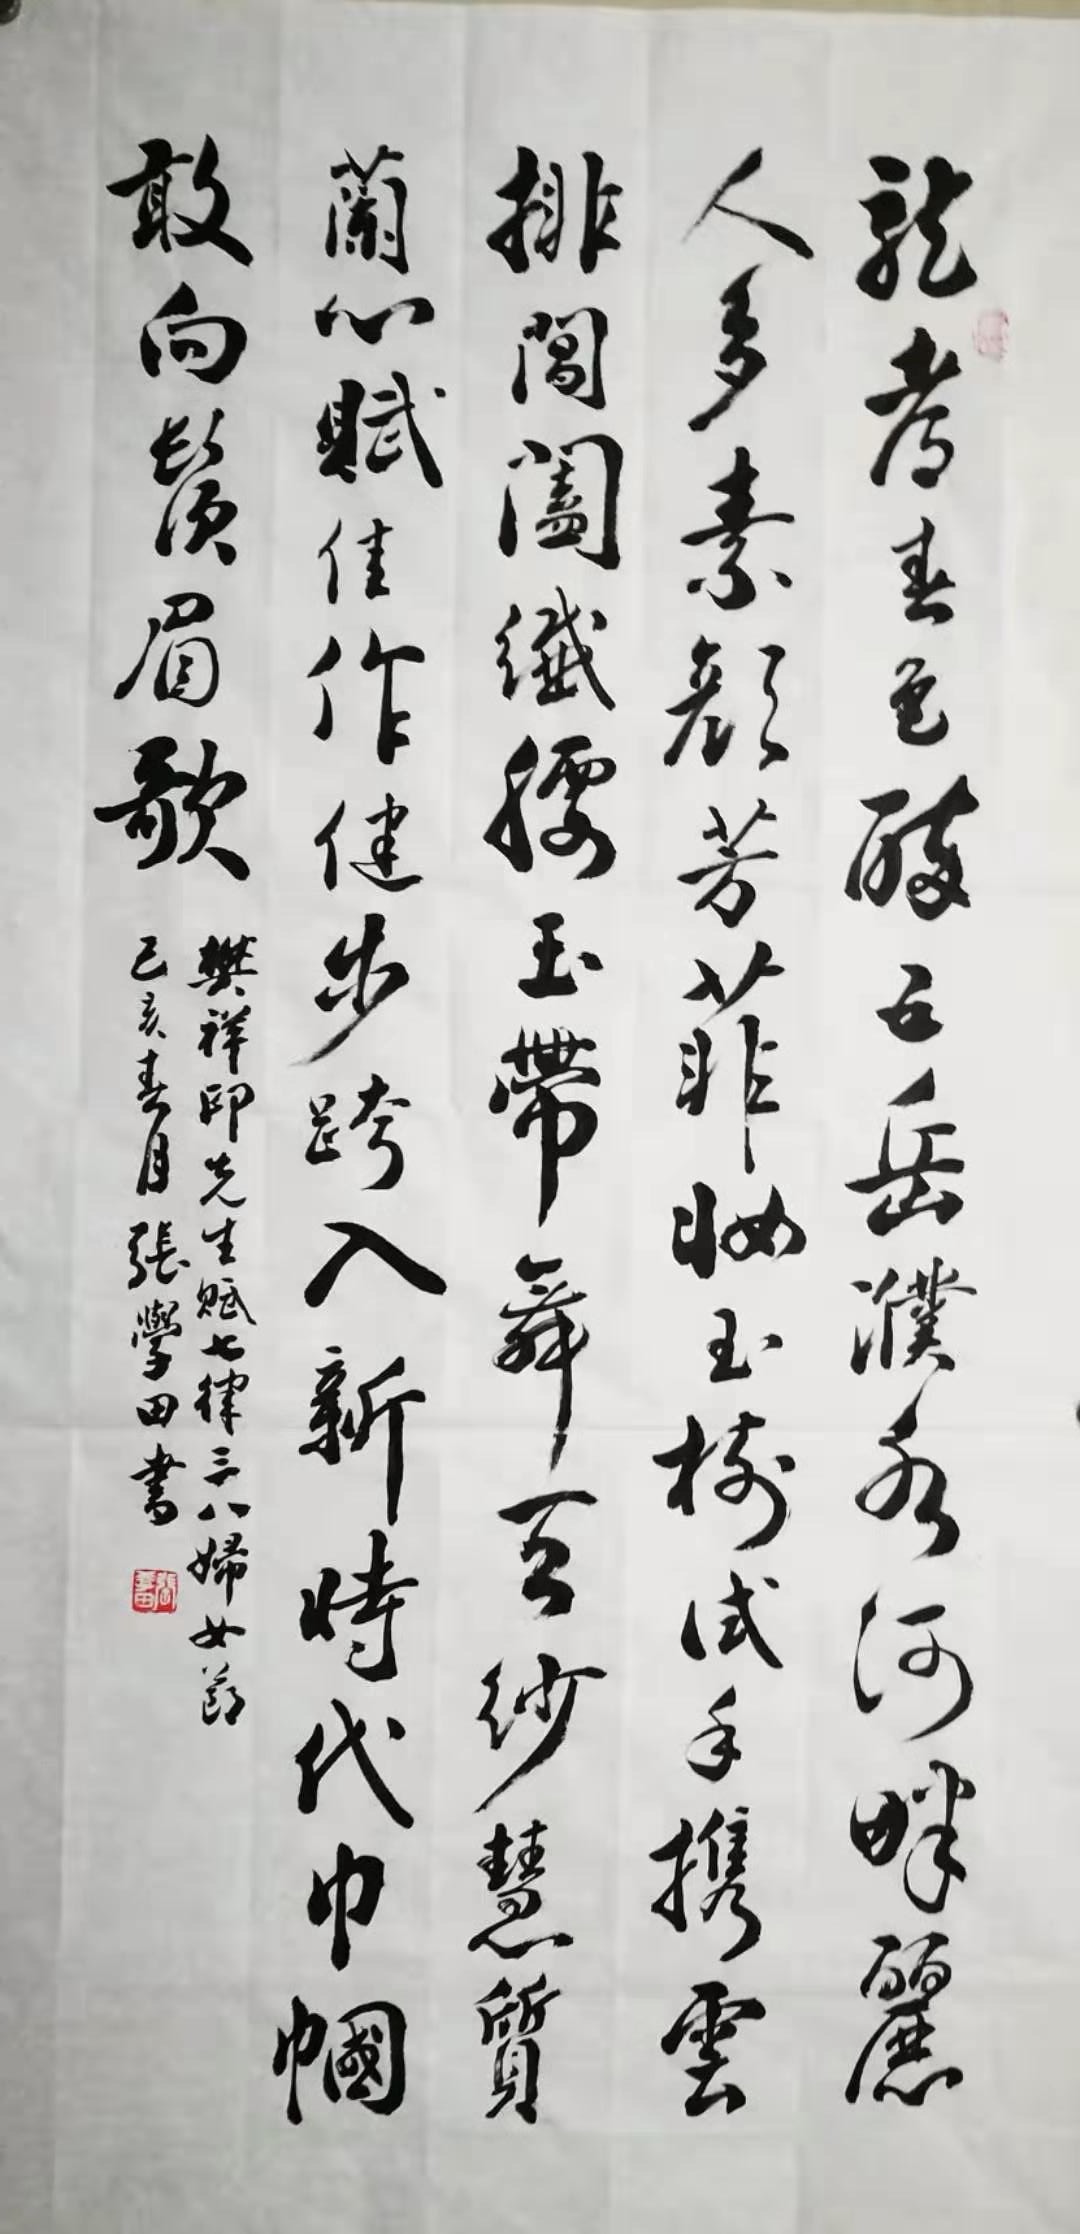 龍耆春色醉五岳濮水河畔麗
人多素顏芳菲妝玉樹試手攜雲
排閶闔纖腰玉帶舞天紗慧質
蘭心賦佳作健步跨入新時代巾幗
敢向鬚眉歌
樊祥印先生賦七律三八婦女節
己亥春月張學田書